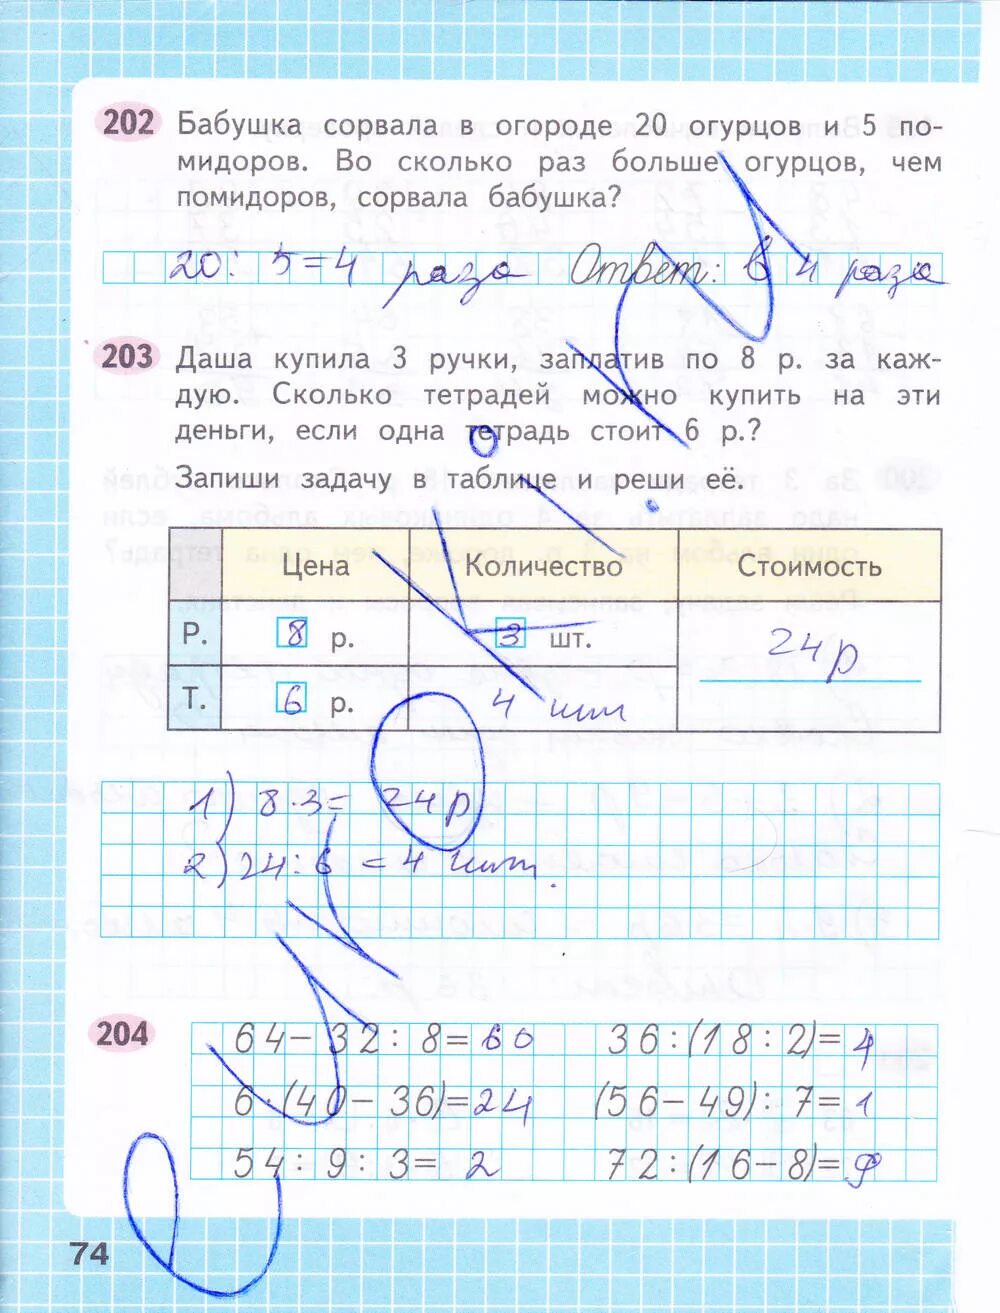 202 Бабушка сорвала в огороде 20 огурцов и 5 по-
мидоров. Во сколько раз больше огурцов, чем
помидоров, сорвала бабушка?
20 : 5 = 4 раза Ответ: в 4 раза
203 Даша купила 3 ручки, заплатив по 8 р. за каж-
дую. Сколько тетрадей можно купить на эти
деньги, если одна тетрадь стоит 6 р.?
Запиши задачу в таблице и реши её.
Цена Количество Стоимость
Р. 8 р. 3 шт. 24 р
Т. 6 р. 4 шт
1) 8 · 3 = 24 р
2) 24 : 6 = 4 шт.
204 64 – 32 : 8 = 60 36 : (18 : 2) = 4
6 · (40 – 36) = 24 (56 – 49) : 7 = 1
54 : 9 : 3 = 2 72 : (16 – 8) = 9
74